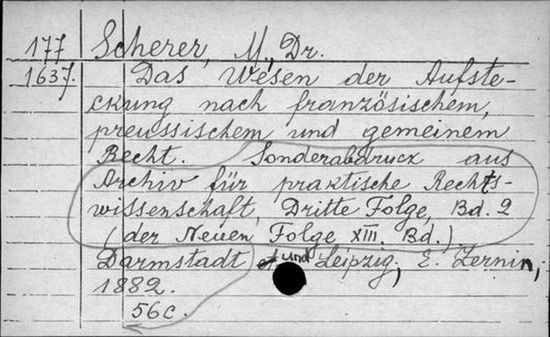 177 Scherer, M, Dr.
1637. Das Wesen der Aufste-
ckung nach französischem,
preussischem und gemeinem
Recht. Sonderabdruck aus
Archiv für praktische Rechts-
wissenschaft, Dritte Folge, Bd. 2
(der Neuen Folge XIII. Bd.)
Darmstadt und Leipzig, E. Zernin,
1882.
56c.